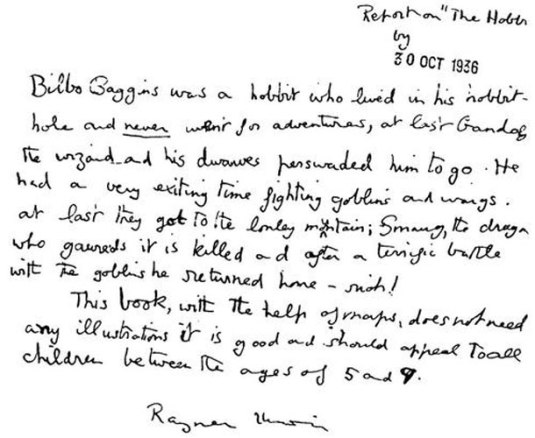 Report on "The Hobb
by
30 OCT 1936
Bilbo Baggins was a hobbit who lived in his hobbit-
hole and never went for adventures, at last Gandalf
the wizard and his dwarves perswaded him to go. He
had a very exiting time fighting goblins and wargs.
at last they got to the lonley mountain; Smaug, the dragon
who gawreds it is killed and after a terrific battle
with the goblins he returned home - rich!
This book, with the help of maps, does not need
any illustrations it is good and should appeal to all
children between the ages of 5 and 9.
Rayner Unwin